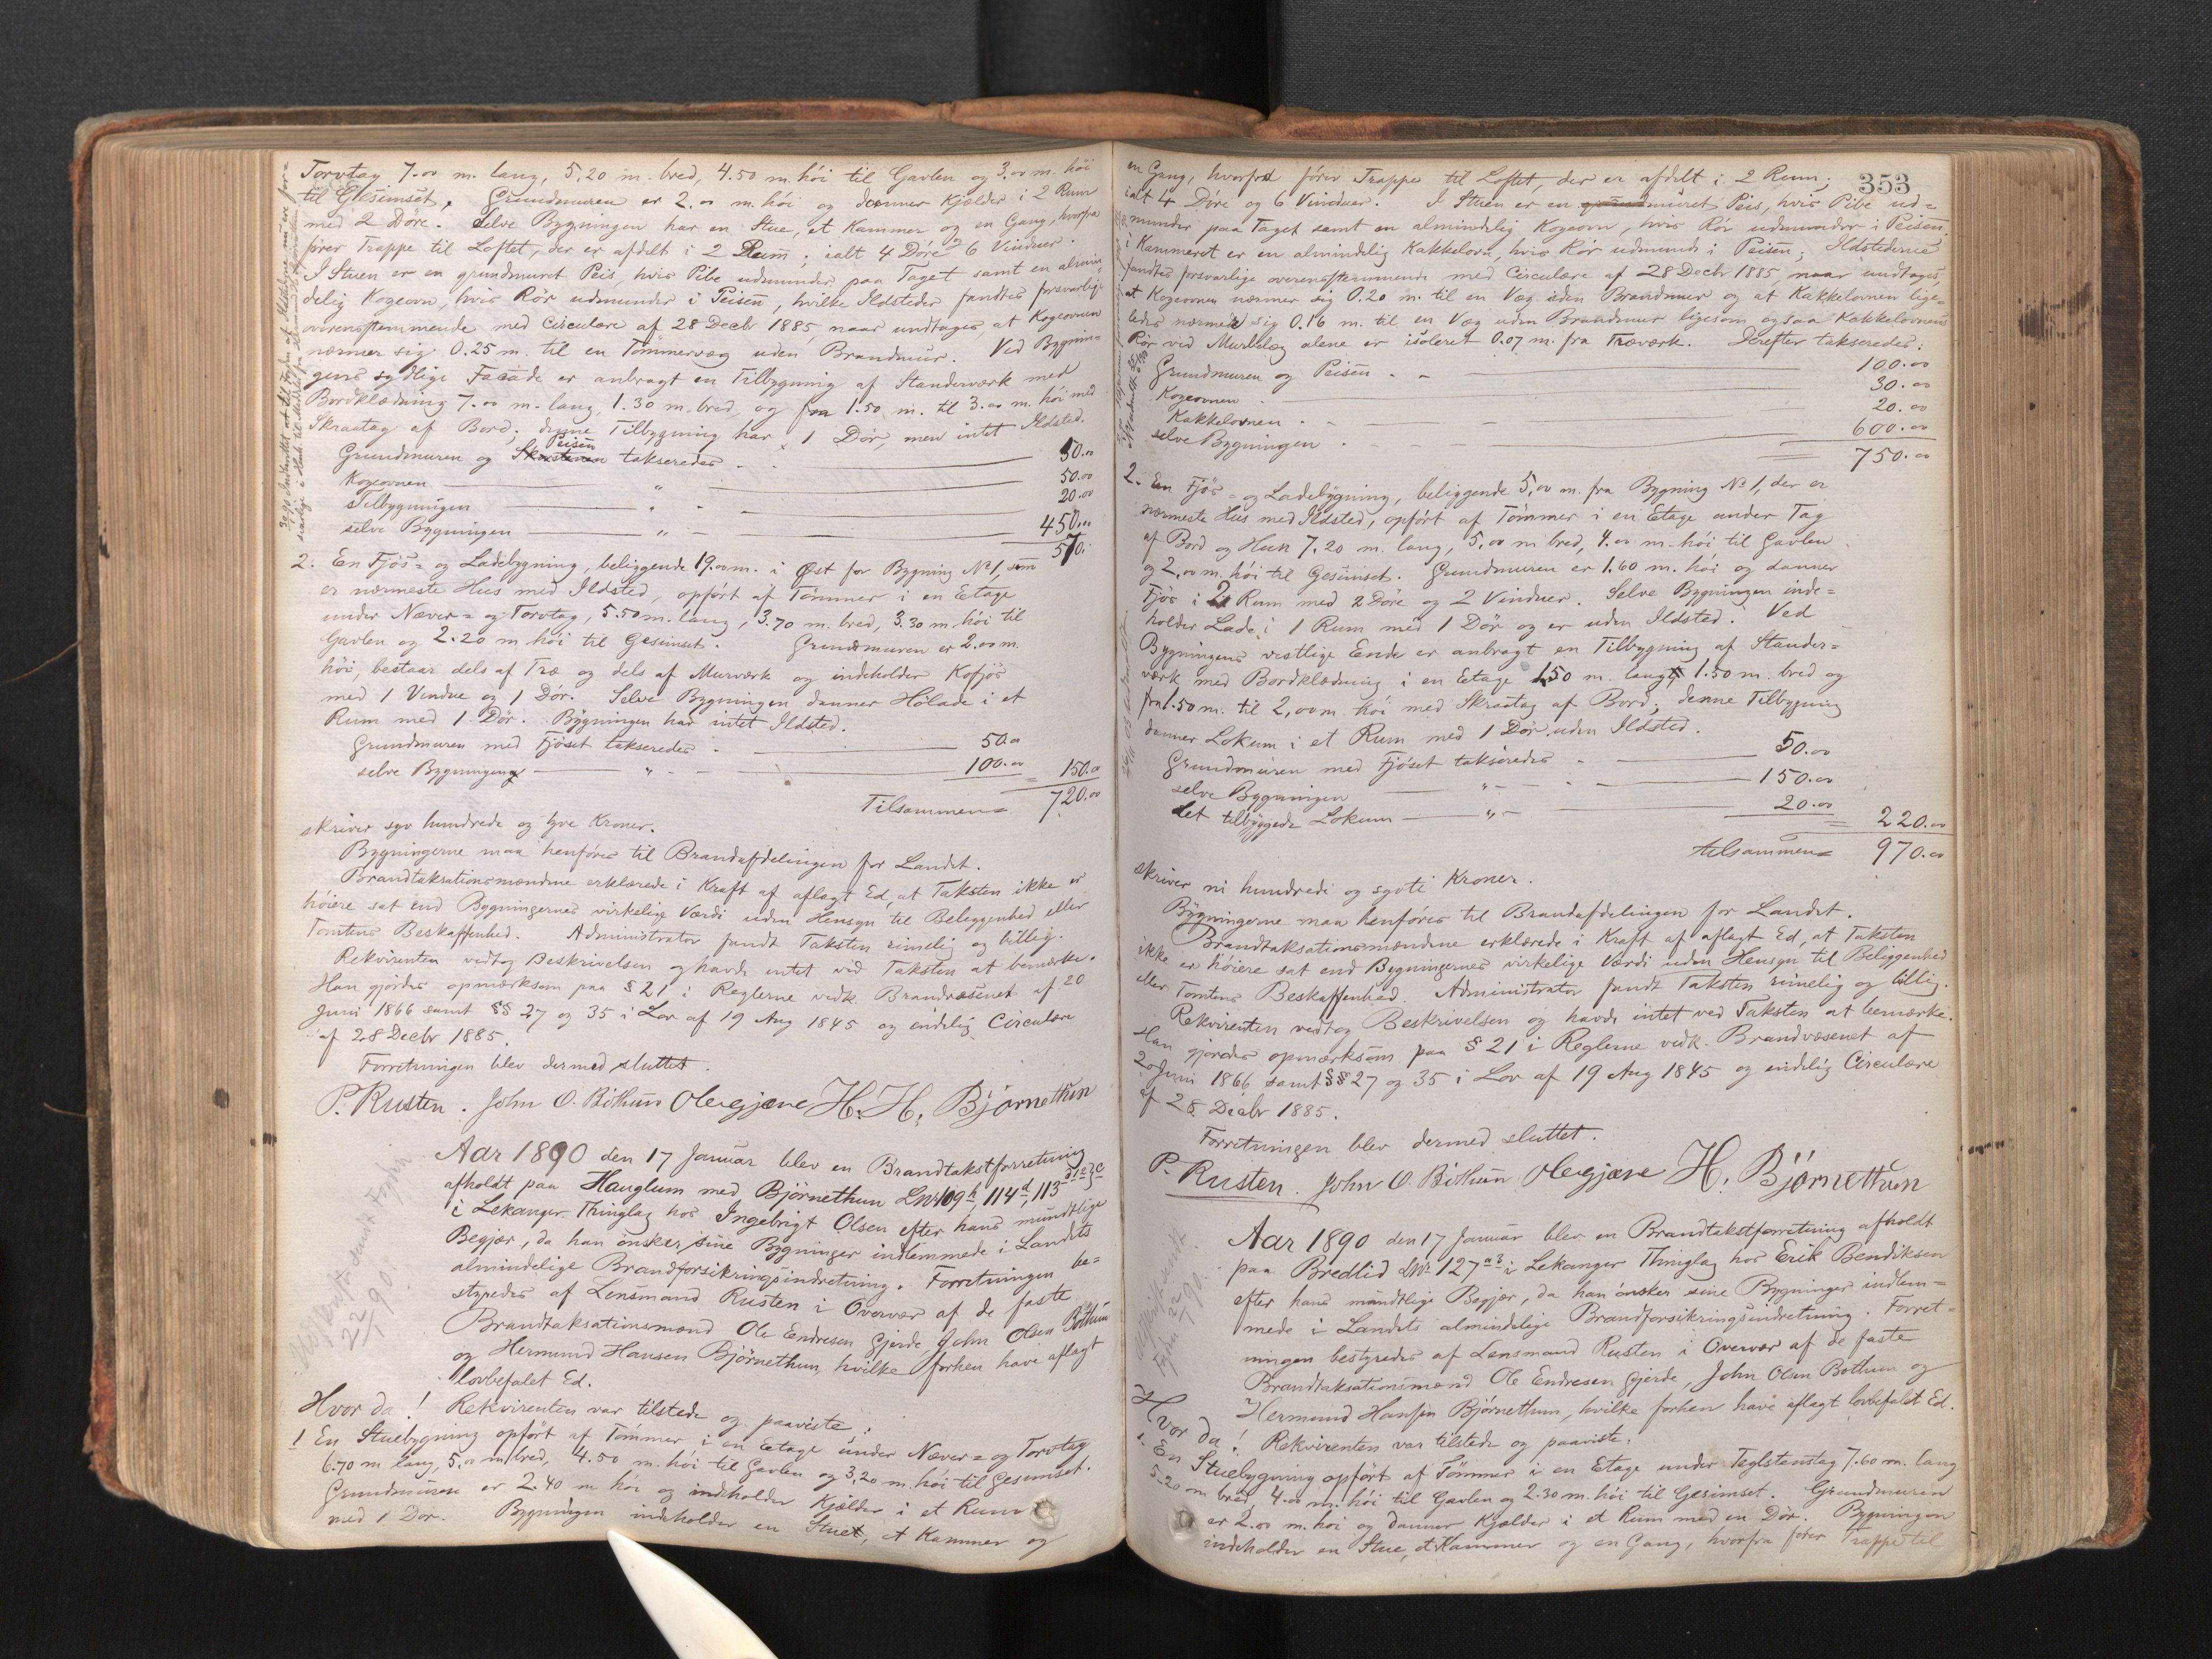 Torvtag 7.00 m. lang, 5,20 m. bred, 4.50 m. høi til Gavlen og 3.00 m. høi
til Gesimset. Grundmuren er 2.00 m. høi og danner Kjælder i 2 Rum
med 2 Döre. Selve Bygningen har en Stue, et Kammer og en Gang, hvorfra
förer Trappe til Loftet, der er afdelt i 2 Rum; ialt 4 Döre og 6 Vinduer.
I Stuen er en grundmuret Peis, hvis Pibe udmunder paa Taget samt en almin-
delig Kogeovn, hvis Rör udmunder i Peisen, hvilke Ildsteder fandtes forsvarlig
overensstemmende med Circulære af 28 Decbr 1885, naar undtages, at Kogeovnen
nærmer sig 0.25 m. til en Tömmervæg uden Brandmur. Ved Bygnin-
gens sydlige Facade er anbragt en Tilbygning af Standerværk med
Bordklædning 7.00 m. lang, 1.30 m. bred og fra 1.50 m. til 3.00 m. höi med
Skraatag af Bord; denne Tilbygning har 1 Dör, men intet Ildsted.
Grundmuren og Peisen takseredes 50.00
Kogeovnen " 50.00
Tilbygningen " 20.00
selve Bygningen " 450.00
570.
2. En Fjös- og Ladebygning, beliggende 19.00 m. i Öst for Bygning No 1, som
er nærmeste Hus med Ildsted, opfört af Tömmer i en Etage
under Næver- og Torvtag, 5.50 m. lang, 3.70 m. bred, 3.30 m. höi til
Gavlen og 2.20 m höi til Gesimset. Grundmuren er 2.00 m.
höi, bestaar dels af Træ og dels af Murværk og indeholder Kofjös
med 1 Vindue og 1 Dör. Selve Bygningen danner Hölade i et
Rum med 1 Dör. Bygningen har intet Ildsted.
Grundmuren med Fjöset takseredes 50.00
selve Bygningen " 100.00 150.00
Tilsammen 720.00
skriver syv hundrede og tyve Kroner.
Bygningerne maa henföres til Brandafdelingen for Landet.
Brandtaksationsmændene erklærede i Kraft af aflagt Ed, at Taksten ikke er
höiere sat end Bygningernes virkelige Værdi uden Hensyn til Beliggenhed eller
Tomtens Beskaffenhed. Administrator fandt Taksten rimelig og billig.
Rekvirenten vedtog Beskrivelsen og havde intet ved Taksten at bemærke.
Han gjordes opmærksom paa § 21 i Reglerne vedk. Brandvæsenet af 20
Juni 1866 samt §§ 27 og 35 i Lov af 19 Aug 1845 og endelig Circulære
af 28 Decbr 1885.
Forretningen blev dermed sluttet.
P. Rusten. John O. Böthun Ole Gjære H. H. Björnethun
Aar 1890 den 17 Januar blev en Brandtakstforretning
afholdt paa Hauglum med Björnethun LNo 109 h, 114 d, 113
i Lekanger Thinglag hos Ingebrigt Olsen efter hans mundtlige
Begjær, da han önsker sine Bygninger indlemmede i Landets
almindelige Brandforsikringsindretning. Forretningen be-
styredes af Lensmand Rusten i Overvær af de faste
Brandtaksationsmænd Ole Endresen Gjerde, John Olsen Böthun
og Hermund Hansen Björnethun, hvilke forhen have aflagt
lovbefalet Ed.
Hvor da! Rekvirenten var tilstede og paaviste:
1 En Stuebygning opfört af Tömmer i en Etage under Næver- og Torvtag
6.70 m lang, 5,00 m bred, 4.50 m. höi til Gavlen og 3,20 m. höi til Gesimset.
Grundmuren er 2.40 m höi og indeholder Kjælder i et Rum
med 1 Dör. Bygningen indeholder en Stue, et Kammer og
Afskrift sendt Fogden
22/1 90.
353
en Gang, hvorfra förer Trappe til Loftet, der er afdelt i 2 Rum;
ialt 4 Döre og 6 Vinduer. I Stuen er en muret Peis, hvis Pibe ud-
munder paa Taget samt en almindelig Kogeovn, hvis Rör udmunder i Peisen.
i Kammeret er en almindelig Kakkelovn, hvis Rör udmunder i Peisen; Ildstederne
fandtes forsvarlige overensstemmende med Circulære af 28 Decbr 1885, naar undtages,
at Kogeovnen nærmer sig 0.20 m. til en Væg uden Brandmur og at Kakkelovnen lige-
ledes nærmer sig 0.16 m. til en Væg uden Brandmur ligesom ogsaa Kakkelovnens
Rör ved Murbelæg alene er isoleret 0.07 m. fra Træværk. Derefter takseredes:
Grundmuren og Peisen 100.00
Kogeovnen 30.00
Kakkelovnen 20.00
selve Bygningen 600.00
750.00
2. En Fjös- og Ladebygning, beliggende 5,00 m. fra Bygning No 1, der er
nærmeste Hus med Ildsted, opfört af Tömmer i en Etage under Tag
af Bord og Hun 7.20 m. lang, 5,00 m bred, 4.00 m. höi til Gavlen
og 2,00 m. höi til Gesimset. Grundmuren er 1.60 m. höi og danner
Fjös i 2 Rum med 2 Döre og 2 Vinduer. Selve Bygningen inde-
holder Lade i 1 Rum med 1 Dör og er uden Ildsted. Ved
Bygningens vestlige Ende er anbragt en Tilbygning af Stander-
værk med Bordklædning i en Etage 1.50 m. lang, 1.50 m. bred og
fra 1.50 m. til 2,00 m. höi med Skraatag af Bord; denne Tilbygning
danner Lokum i et Rum med 1 Dör uden Ildsted.
Grundmuren med Fjöset takseredes 50.00
selve Bygningen " 150.00
det tilbyggede Lokum " 20.00
220.00
tilsammen 970.00
skriver ni hundrede og sytti Kroner.
Bygningerne maa henföres til Brandafdelingen for Landet.
Brandtaksationsmændene erklærede i Kraft af aflagt Ed, at Taksten
ikke er höiere sat end Bygningernes virkelige Værdi uden Hensyn til Beliggenhed
eller Tomtens Beskaffenhed. Administrator fandt Taksten rimelig og billig.
Rekvirenten vedtog Beskrivelsen og havde intet ved Taksten at bemærke.
Han gjordes opmærksom paa § 21 i Reglerne vedk. Brandvæsenet af
20 Juni 1866 samt §§ 27 og 35 i Lov af 19 Aug 1845 og endelig Circulære
af 28 Decbr 1885.
Forretningen blev dermed sluttet.
P. Rusten. John O. Böthun Ole Gjære H. Björnethun
Aar 1890 den 17 Januar blev en Brandtakstforretning afholdt
paa Bredlid LNo 127 i Lekanger Thinglag hos Erik Bendiksen
efter hans mundtlige Begjær, da han önsker sine Bygninger indlem-
mede i Landets almindelige Brandforsikringsindretning. Forret-
ningen bestyredes af Lensmand Rusten i Overvær af de faste
Brandtaksationsmænd Ole Endresen Gjerde, John Olsen Bothun og
Hermund Hansen Björnethun, hvilke forhen have aflagt lovbefalet Ed.
Hvor da! Rekvirenten var tilstede og paaviste:
1. En Stuebygning opfört af Tömmer i en Etage under Teglstenstag 7.60 m. lang
5.20 m bred, 4.00 m. höi til Gavlen og 2.30 m. höi til Gesimset. Grundmuren
er 2.00 m. höi og danner Kjælder i et Rum med en Dör. Bygningen
indeholder en Stue, et Kammer og en Gang, hvorfra förer Trappe til
Afskrift sendt
Fogden 22/1 90.